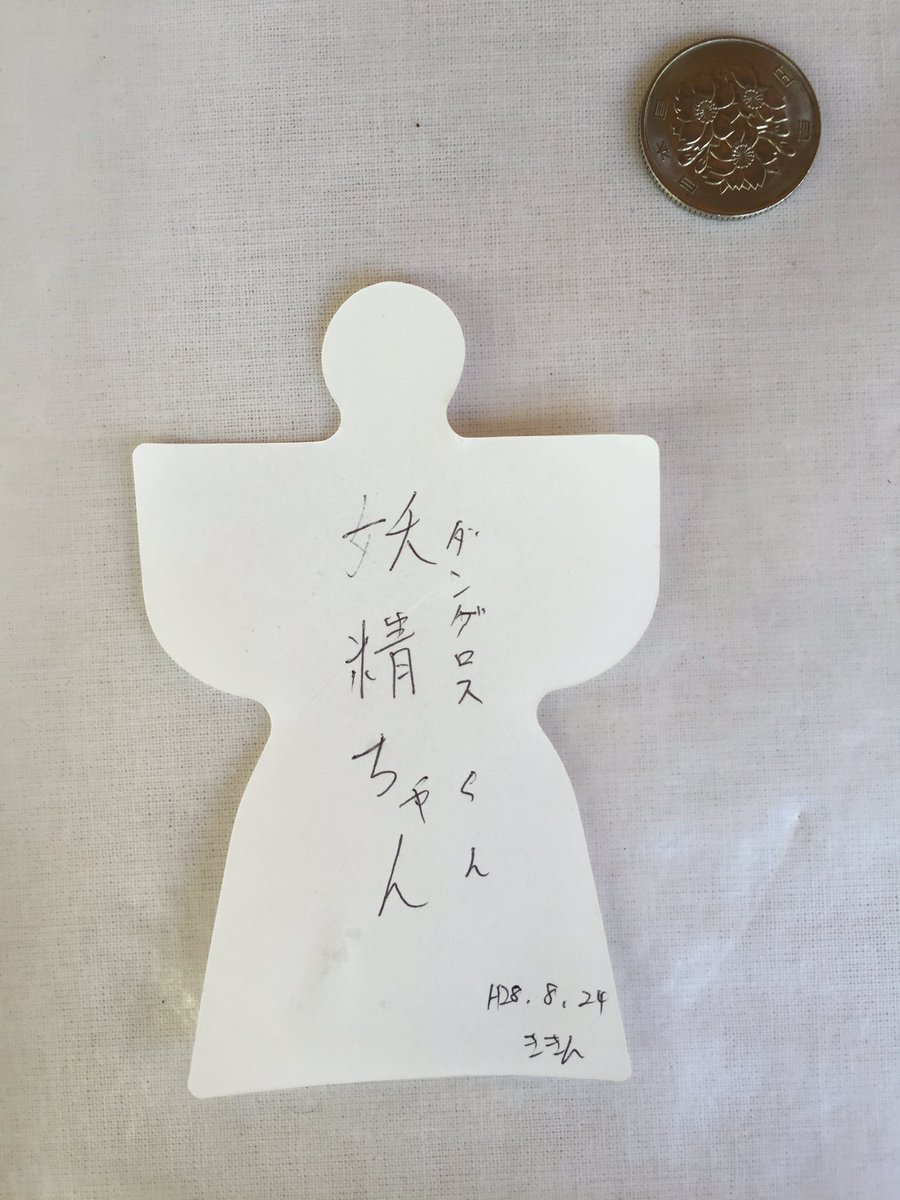 ダンゲロスくん
妖精ちゃん
H28.8.24
ききん
日本国
百円